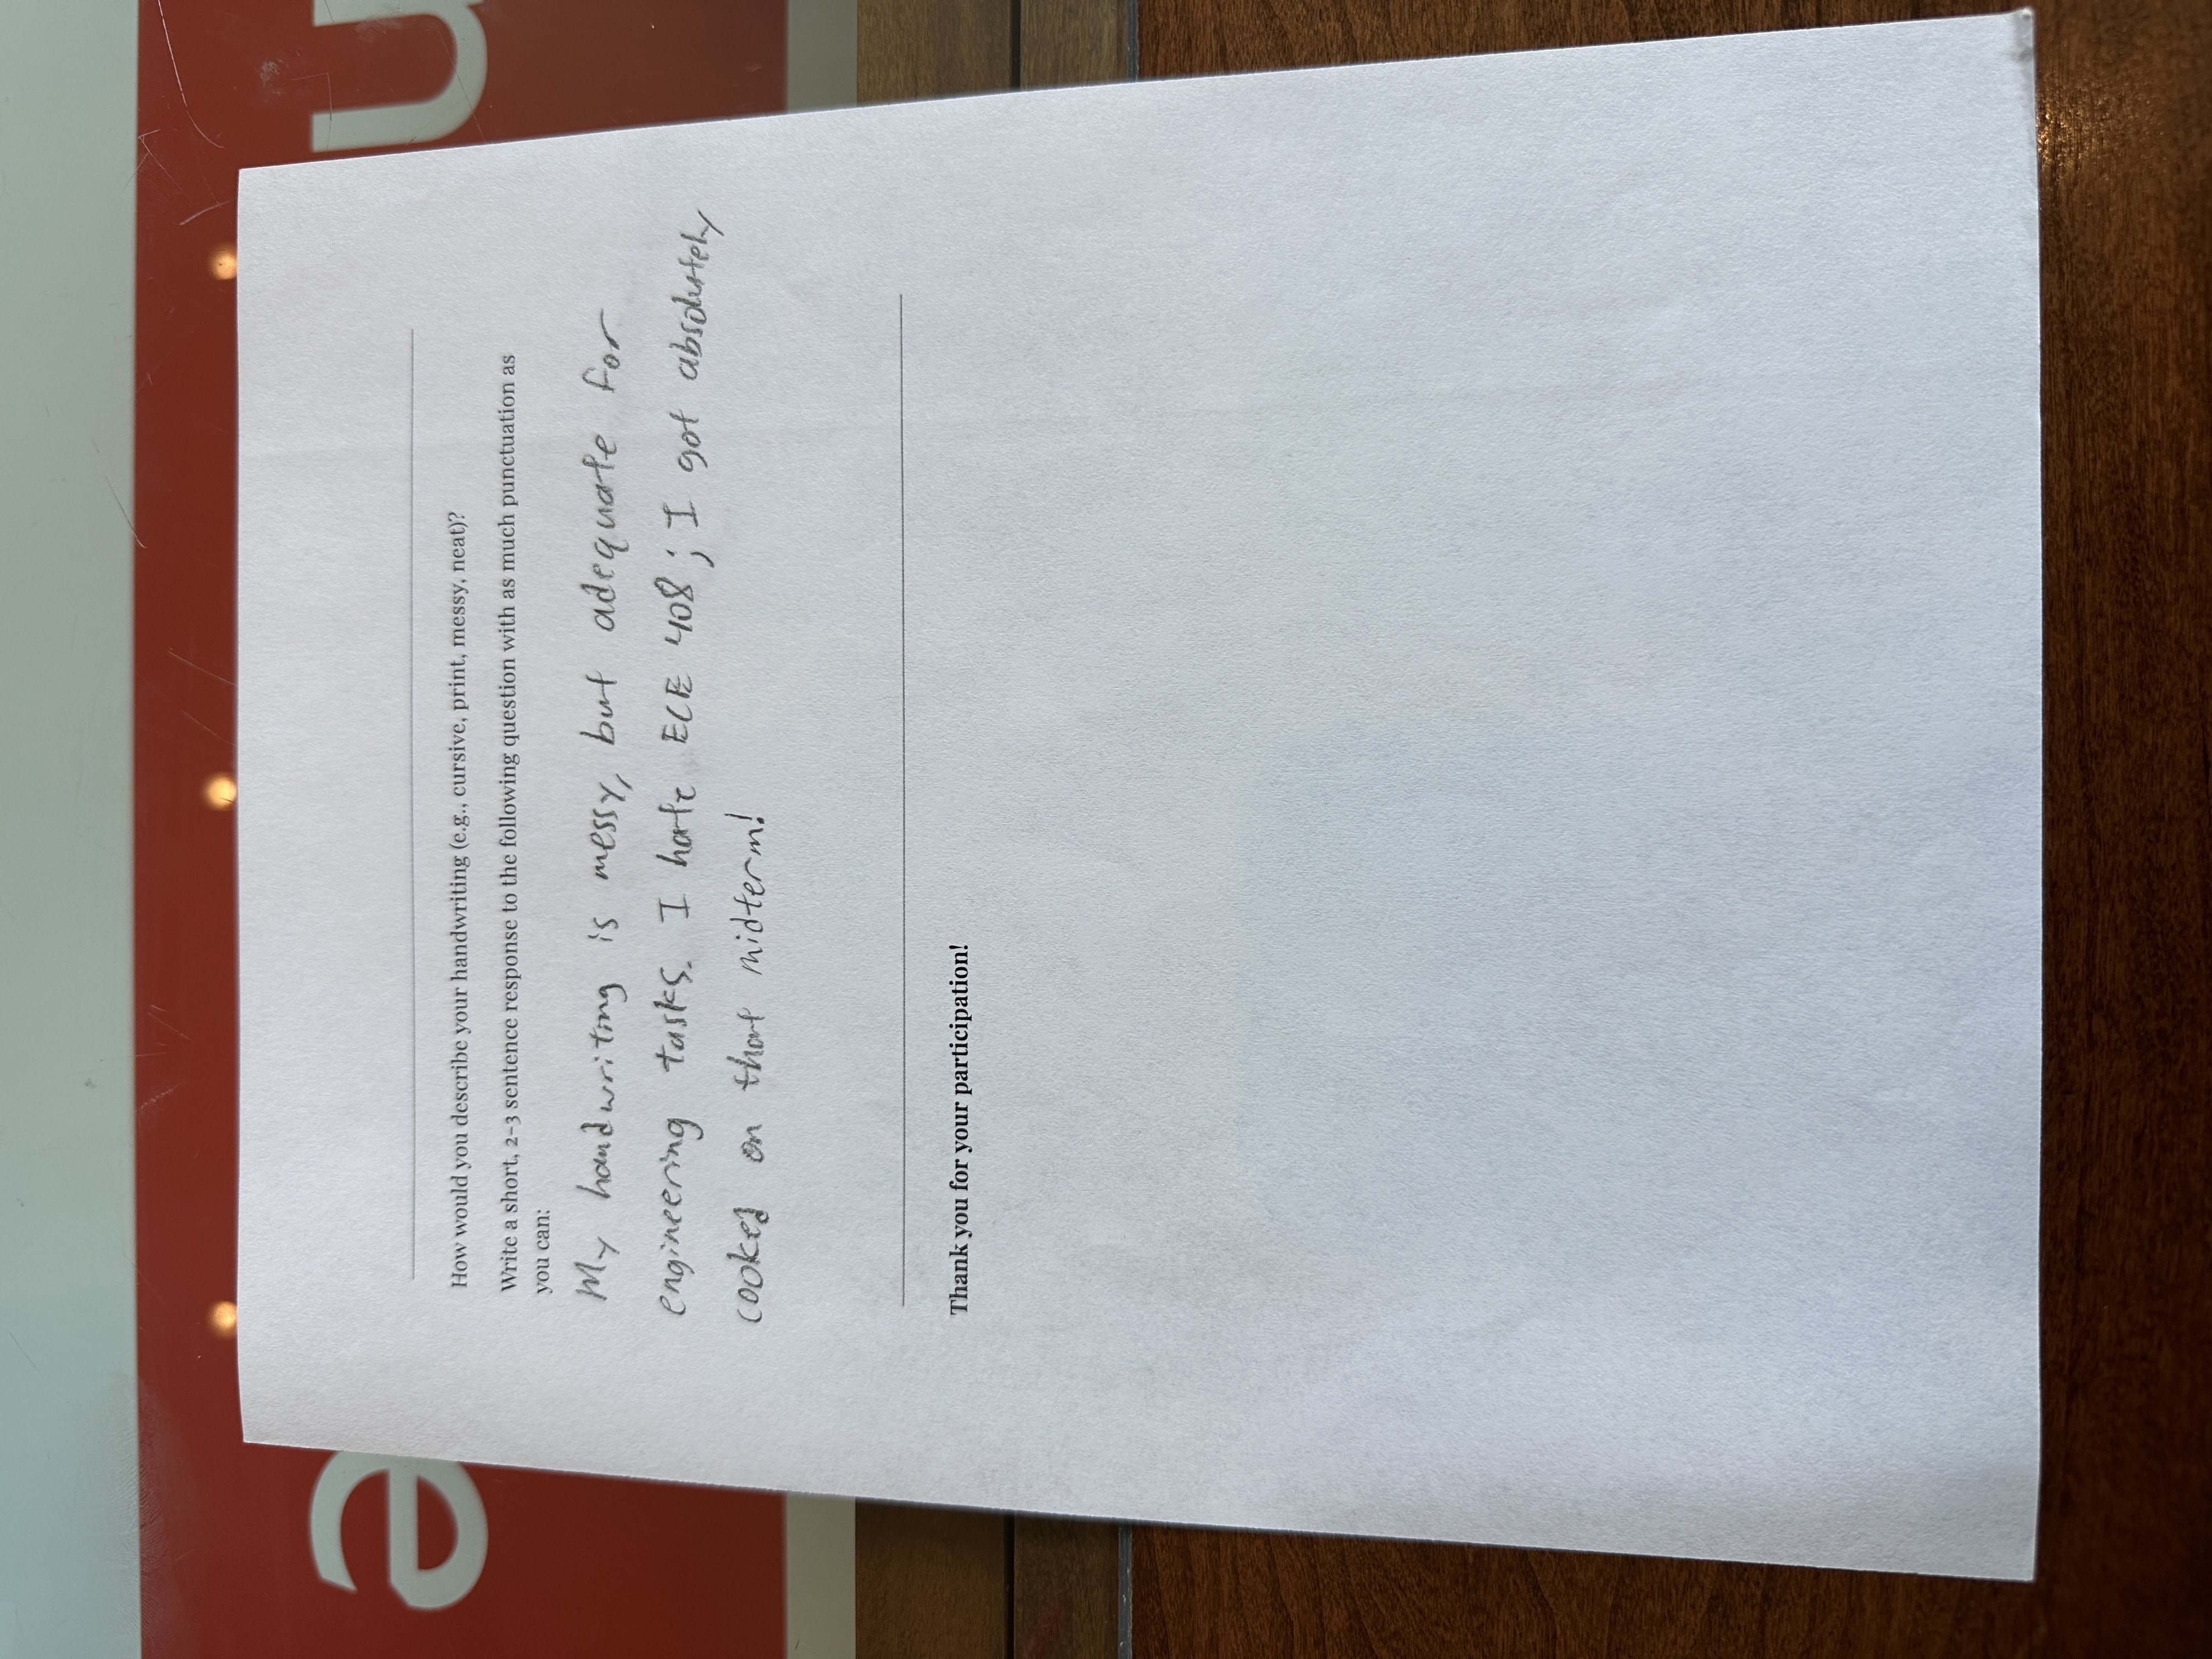 e
u
How would you describe your handwriting (e.g., cursive, print, messy, neat)?
Write a short, 2-3 sentence response to the following question with as much punctuation as
you can:
My handwriting is messy, but adequate for
engineering tasks. I hate ECE 408; I got absolutely
cooked on that midterm!
Thank you for your participation!